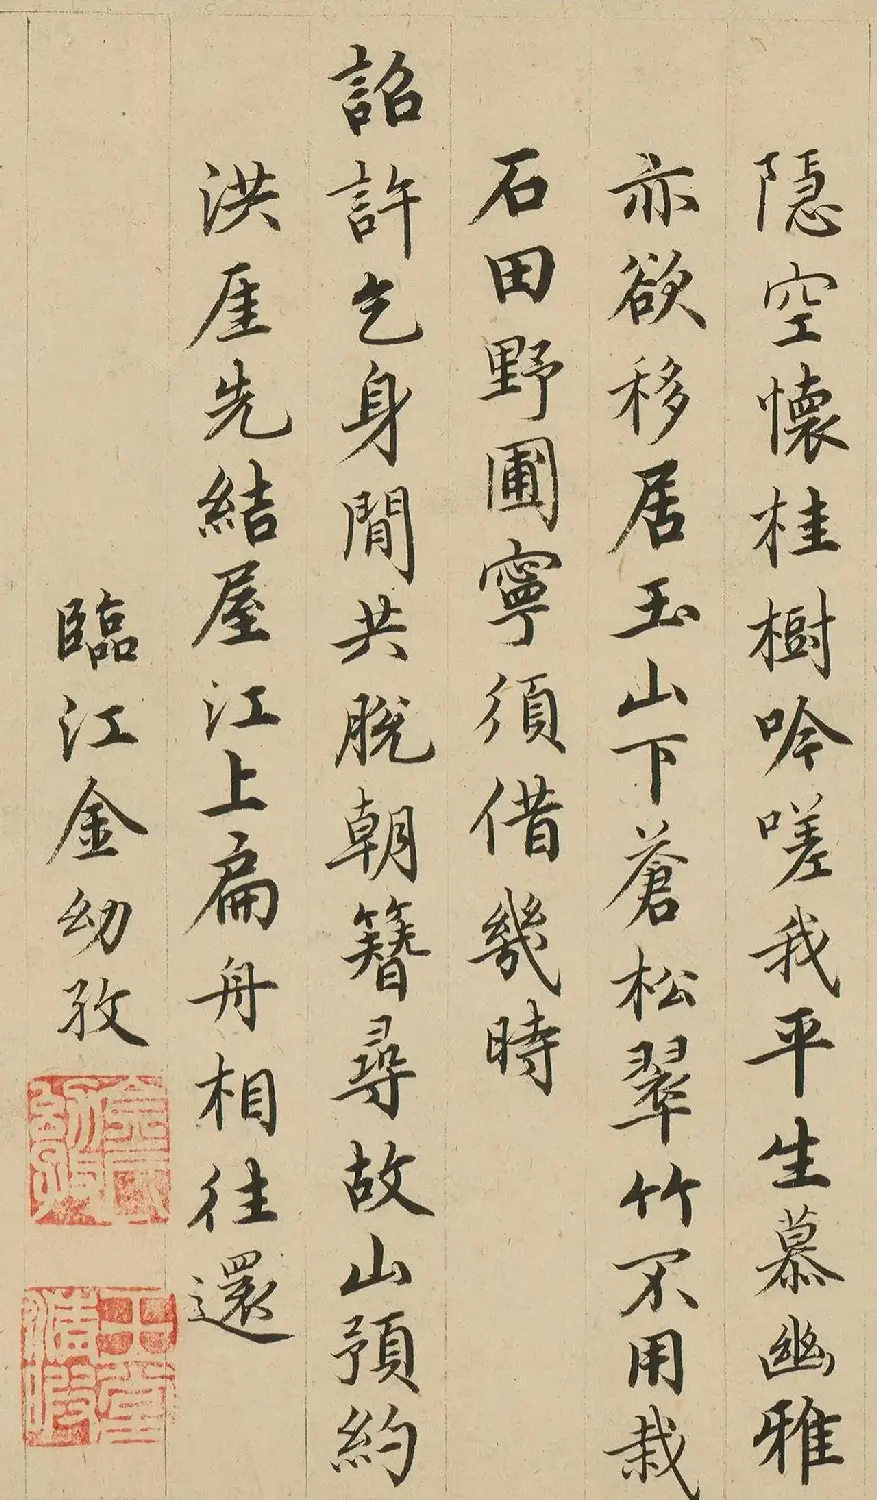 隱空懷桂樹吟嗟我平生慕幽雅
亦欲移居玉山下蒼松翠竹不用栽
石田野圃寧須借幾時
詔許乞身閒共脫朝簪尋故山預約
洪厓先結屋江上扁舟相往還
臨江金幼孜